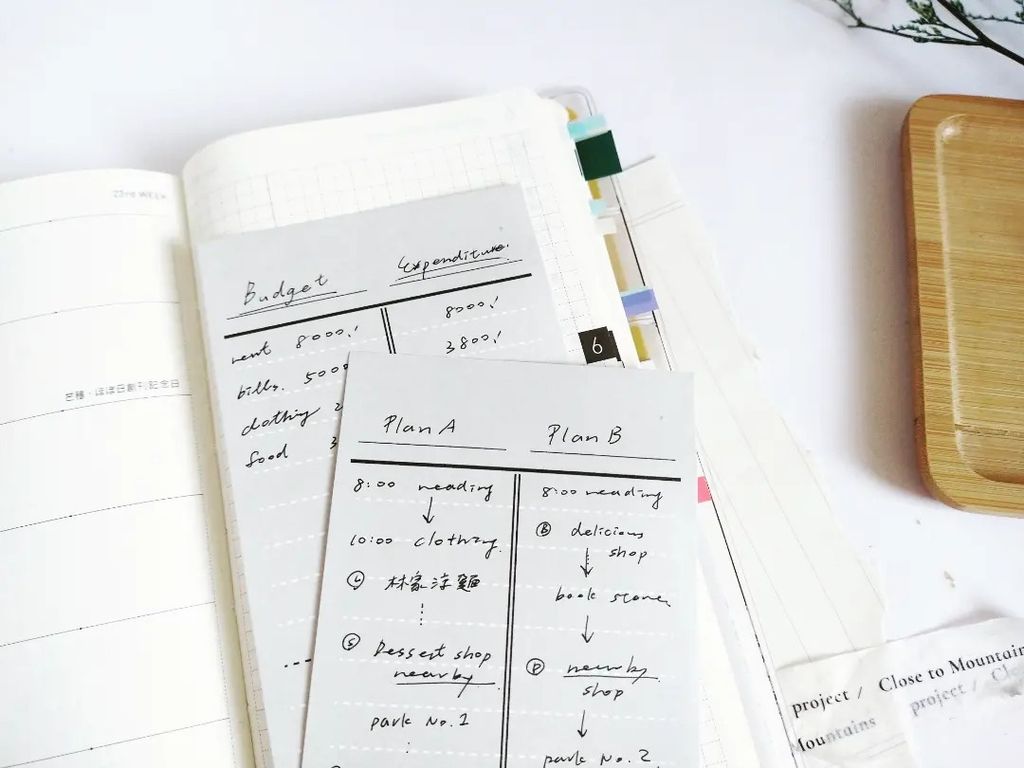 22nd WEEK
芒種・ほぼ日創刊記念日
Budget
Expenditure.
rent 8000.!
8000.!
bills. 5000
3800.!
clothing 2
food 3
6
Plan A
8:00 reading
↓
10:00 clothing.
Ⓛ 林家涼麵
Ⓢ Dessert shop
nearby
park No.1
Plan B
8:00 reading
Ⓑ delicious
shop
↓
book store.
↓
Ⓓ nearby
shop
↓
park No.2
project / Close to Mountain
project / Clo
Mountains